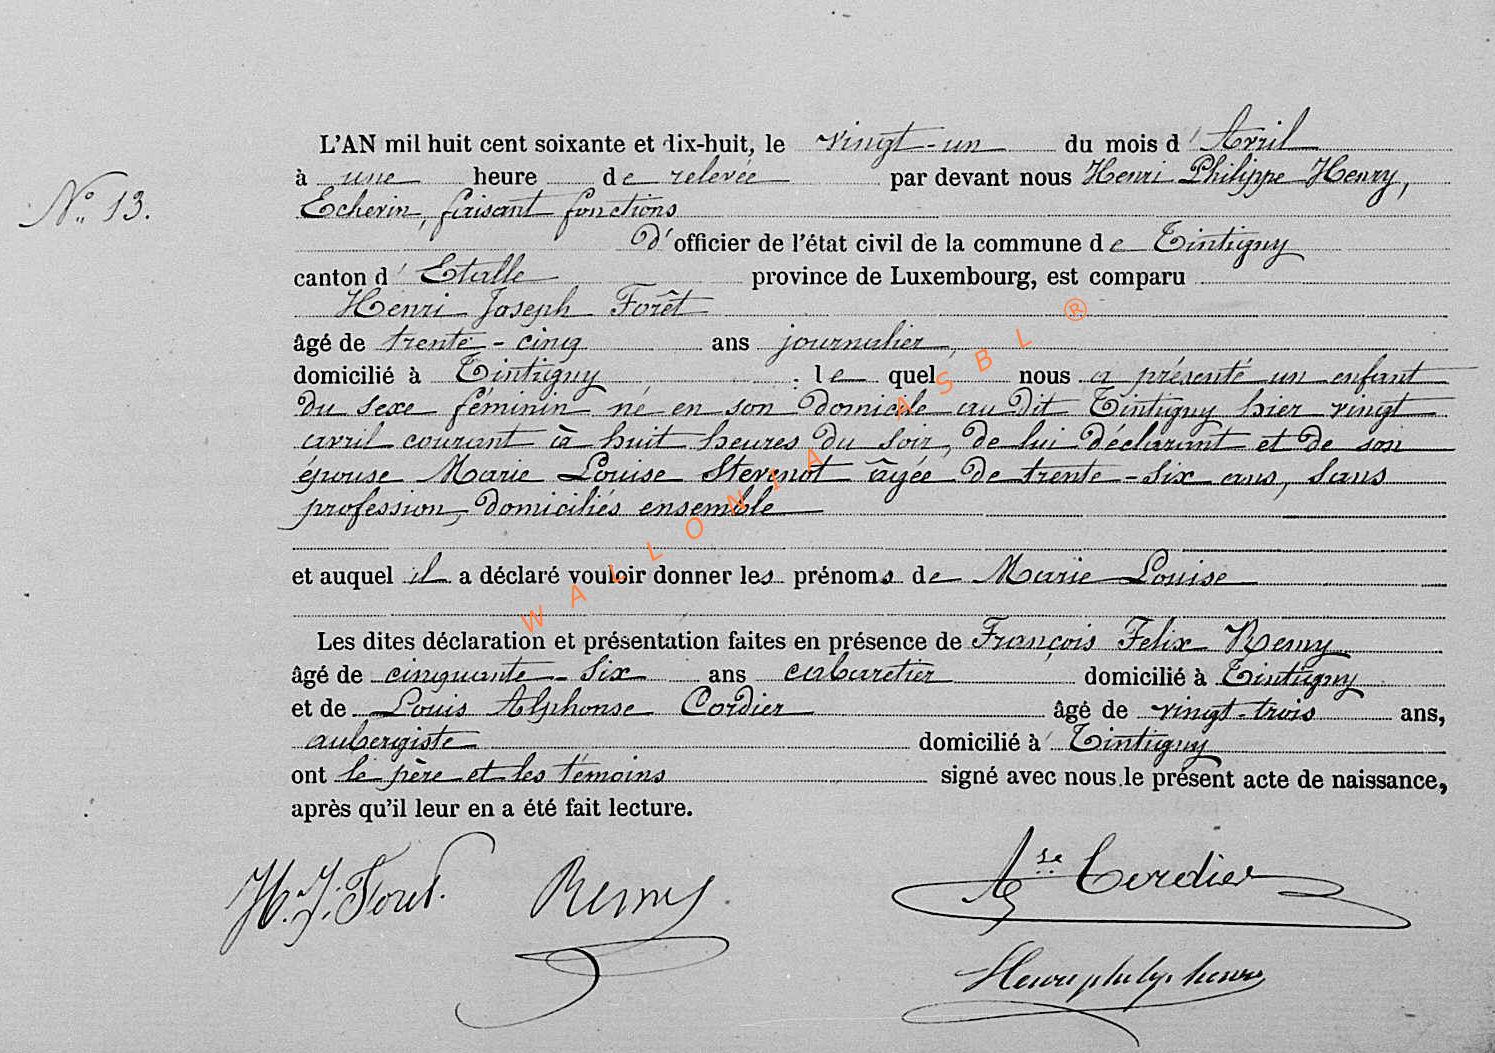 L'AN mil huit cent soixante et dix-huit, le vingt-un du mois d'Avril
Nº 13.
à une heure de relevée par devant nous Henri Philippe Henry,
Echevin, faisant fonctions
d'officier de l'état civil de la commune de Tintigny
canton d'Etalle province de Luxembourg, est comparu
Henri Joseph Forêt
âgé de trente-cinq ans journalier,
domicilié à Tintigny : le quel nous a présenté un enfant
du sexe féminin né en son domicile au dit Tintigny hier vingt
avril courant à huit heures du soir, de lui déclarant et de son
épouse Marie Louise Stevenot âgée de trente-six ans, sans
profession, domiciliés ensemble
et auquel il a déclaré vouloir donner les prénoms de Marie Louise
Les dites déclaration et présentation faites en présence de François Felix Remy
âgé de cinquante-six ans cabaretier domicilié à Tintigny
et de Louis Alphonse Cordier âgé de vingt-trois ans,
aubergiste domicilié à Tintigny
ont le père et les témoins signé avec nous le présent acte de naissance,
après qu'il leur en a été fait lecture.
H. J. Foret. Remy Ase Cordier
Henri philip henry
WALLONIA ASBL ®